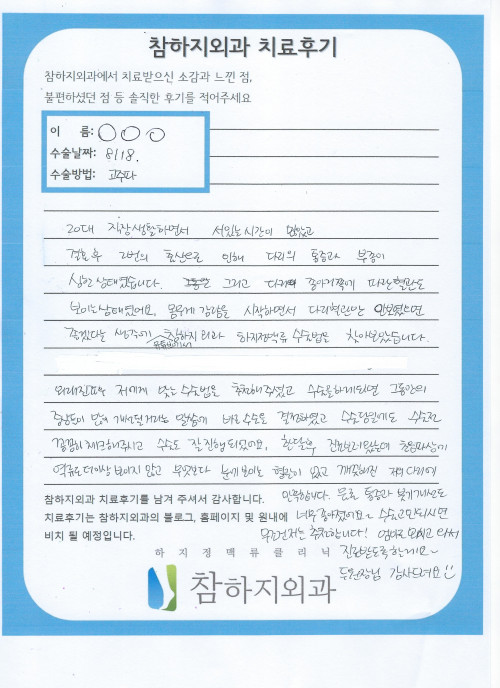 참하지외과 치료후기
참하지외과에서 치료받으신 소감과 느낀 점,
불편하셨던 점 등 솔직한 후기를 적어주세요
이 름: ○○○
수술날짜: 8/18.
수술방법: 고주파
20대 직장생활하면서 서있는시간이 많았고
결혼후 2번의 출산으로 인해 다리의 통증과 부종이
심한 상태였습니다. 그리고 종아리쪽에 파란혈관도
보이는상태였어요. 몸무게 감량을 시작하면서 다리혈관만 안보였으면
좋겠다는 생각에 유튜브에서 참하지외과 하지정맥류 수술법을 찾아보았습니다.
외래진료후 저에게 맞는 수술법을 추천해주셨고 수술을하게되면 그동안의
증상들이 많이 개선될거라는 말씀에 바로 수술을 결정하였고 수술당일에도 수술전
꼼꼼히체크해주시고 수술도 잘 진행되었어요. 한달후 진료보러왔는데 초음파상에
역류도더이상 보이지 않고 무엇보다 눈에 보이는 혈관이 없고 깨끗해진 저의 다리에
만족합니다. 물론 통증과 붓기개선도
참하지외과 치료후기를 남겨 주셔서 감사합니다.
치료후기는 참하지외과의 블로그, 홈페이지 및 원내에
비치 될 예정입니다.
너무좋아졌어요~ 수술고민되시면
무조건저는 추천합니다! 엄마도 모시고 와서
진료받도록할게요~
두원장님 감사드려요
하지정맥류클리닉
참하지외과